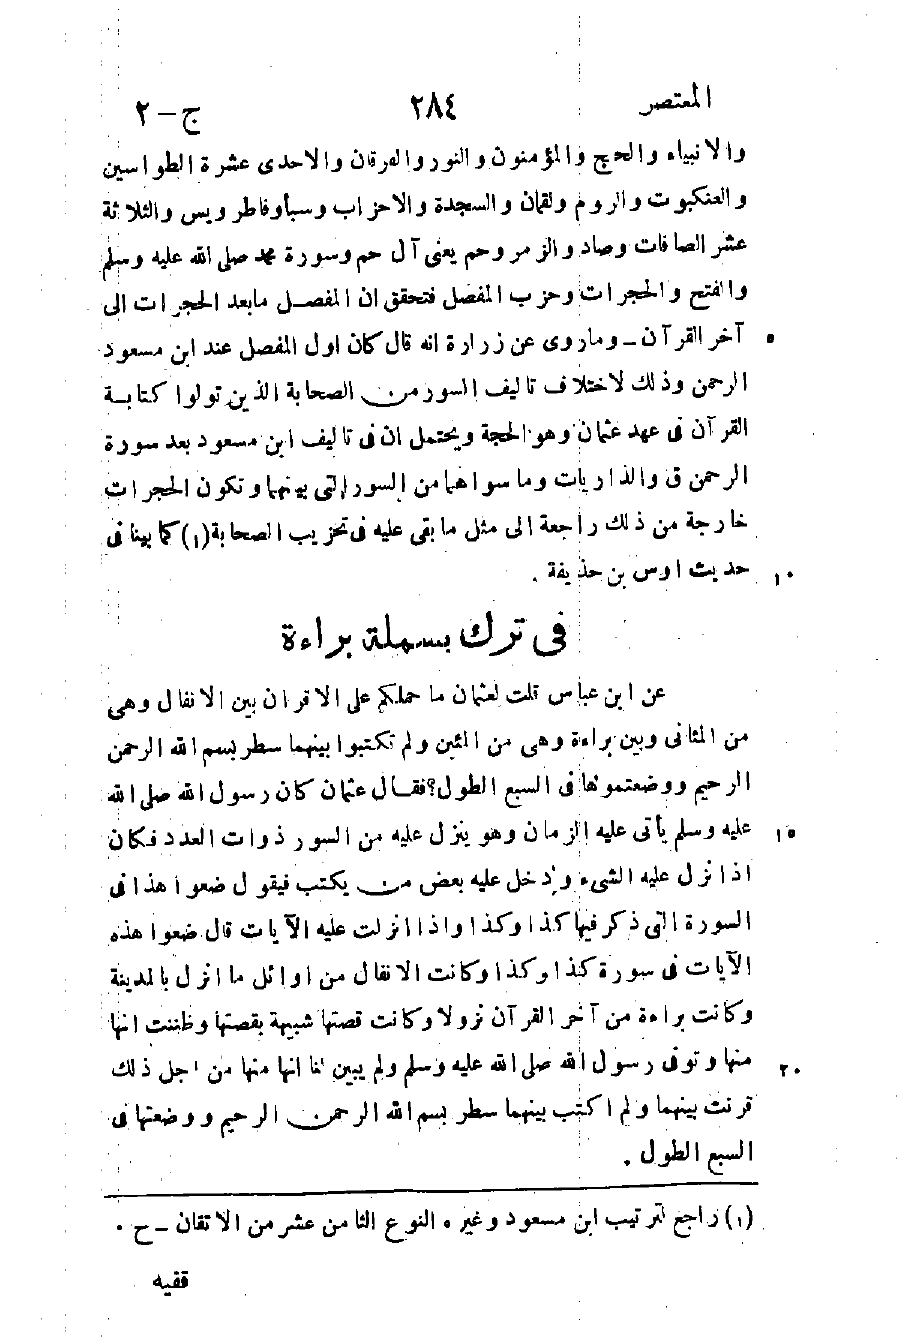 المعتصر ٢٨٤ ج-٢
والانبياء والحج والمؤمنون والنور والفرقان والاحدى عشرة الطواسين
والعنكبوت والروم ولقمان والسجدة والاحزاب وسبأ وفاطر ويس والثلاثة
عشر الصافات وصاد والزمر وحم يعنى آل حم وسورة محمد صلى الله عليه وسلم
والفتح والحجرات وحزب المفصل فتحقق ان المفصل مابعد الحجرات الى
٥ آخر القرآن - وماروى عن زرارة انه قال كان اول المفصل عند ابن مسعود
الرحمن وذلك لاختلاف تاليف السور من الصحابة الذين تولوا كتابة
القرآن فى عهد عثمان وهو الحجة ويحتمل ان فى تاليف ابن مسعود بعد سورة
الرحمن ق والذاريات وما سواهما من السور التى بينهما وتكون الحجرات
خارجة من ذلك راجعة الى مثل ما بقى عليه فى تحزيب الصحابة (١) كما بينا فى
١٠ حديث اوس بن حذيفة .
فى ترك بسملة براءة
عن ابن عباس قلت لعثمان ما حملكم على الاقران بين الانفال وهى
من المثانى وبين براءة وهى من المئين ولم تكتبوا بينهما سطر بسم الله الرحمن
الرحيم ووضعتموها فى السبع الطول؟ فقال عثمان كان رسول الله صلى الله
١٥ عليه وسلم يأتى عليه الزمان وهو ينزل عليه من السور ذوات العدد فكان
اذا نزل عليه الشىء يدخل عليه بعض من يكتب فيقول ضعوا هذا فى
السورة التى ذكر فيها كذا وكذا واذا انزلت عليه الآيات قال ضعوا هذه
الآيات فى سورة كذا وكذا وكانت الانفال من اوائل ما انزل بالمدينة
وكانت براءة من آخر القرآن نزولا وكانت قصتها شبيهة بقصتها وظننت انها
٢٠ منها وتوفى رسول الله صلى الله عليه وسلم ولم يبين لنا انها منها من اجل ذلك
قرنت بينهما ولم اكتب بينهما سطر بسم الله الرحمن الرحيم ووضعتها فى
السبع الطول .
(١) راجع لترتيب ابن مسعود وغيره النوع الثامن عشر من الاتقان - ح .
ففيه